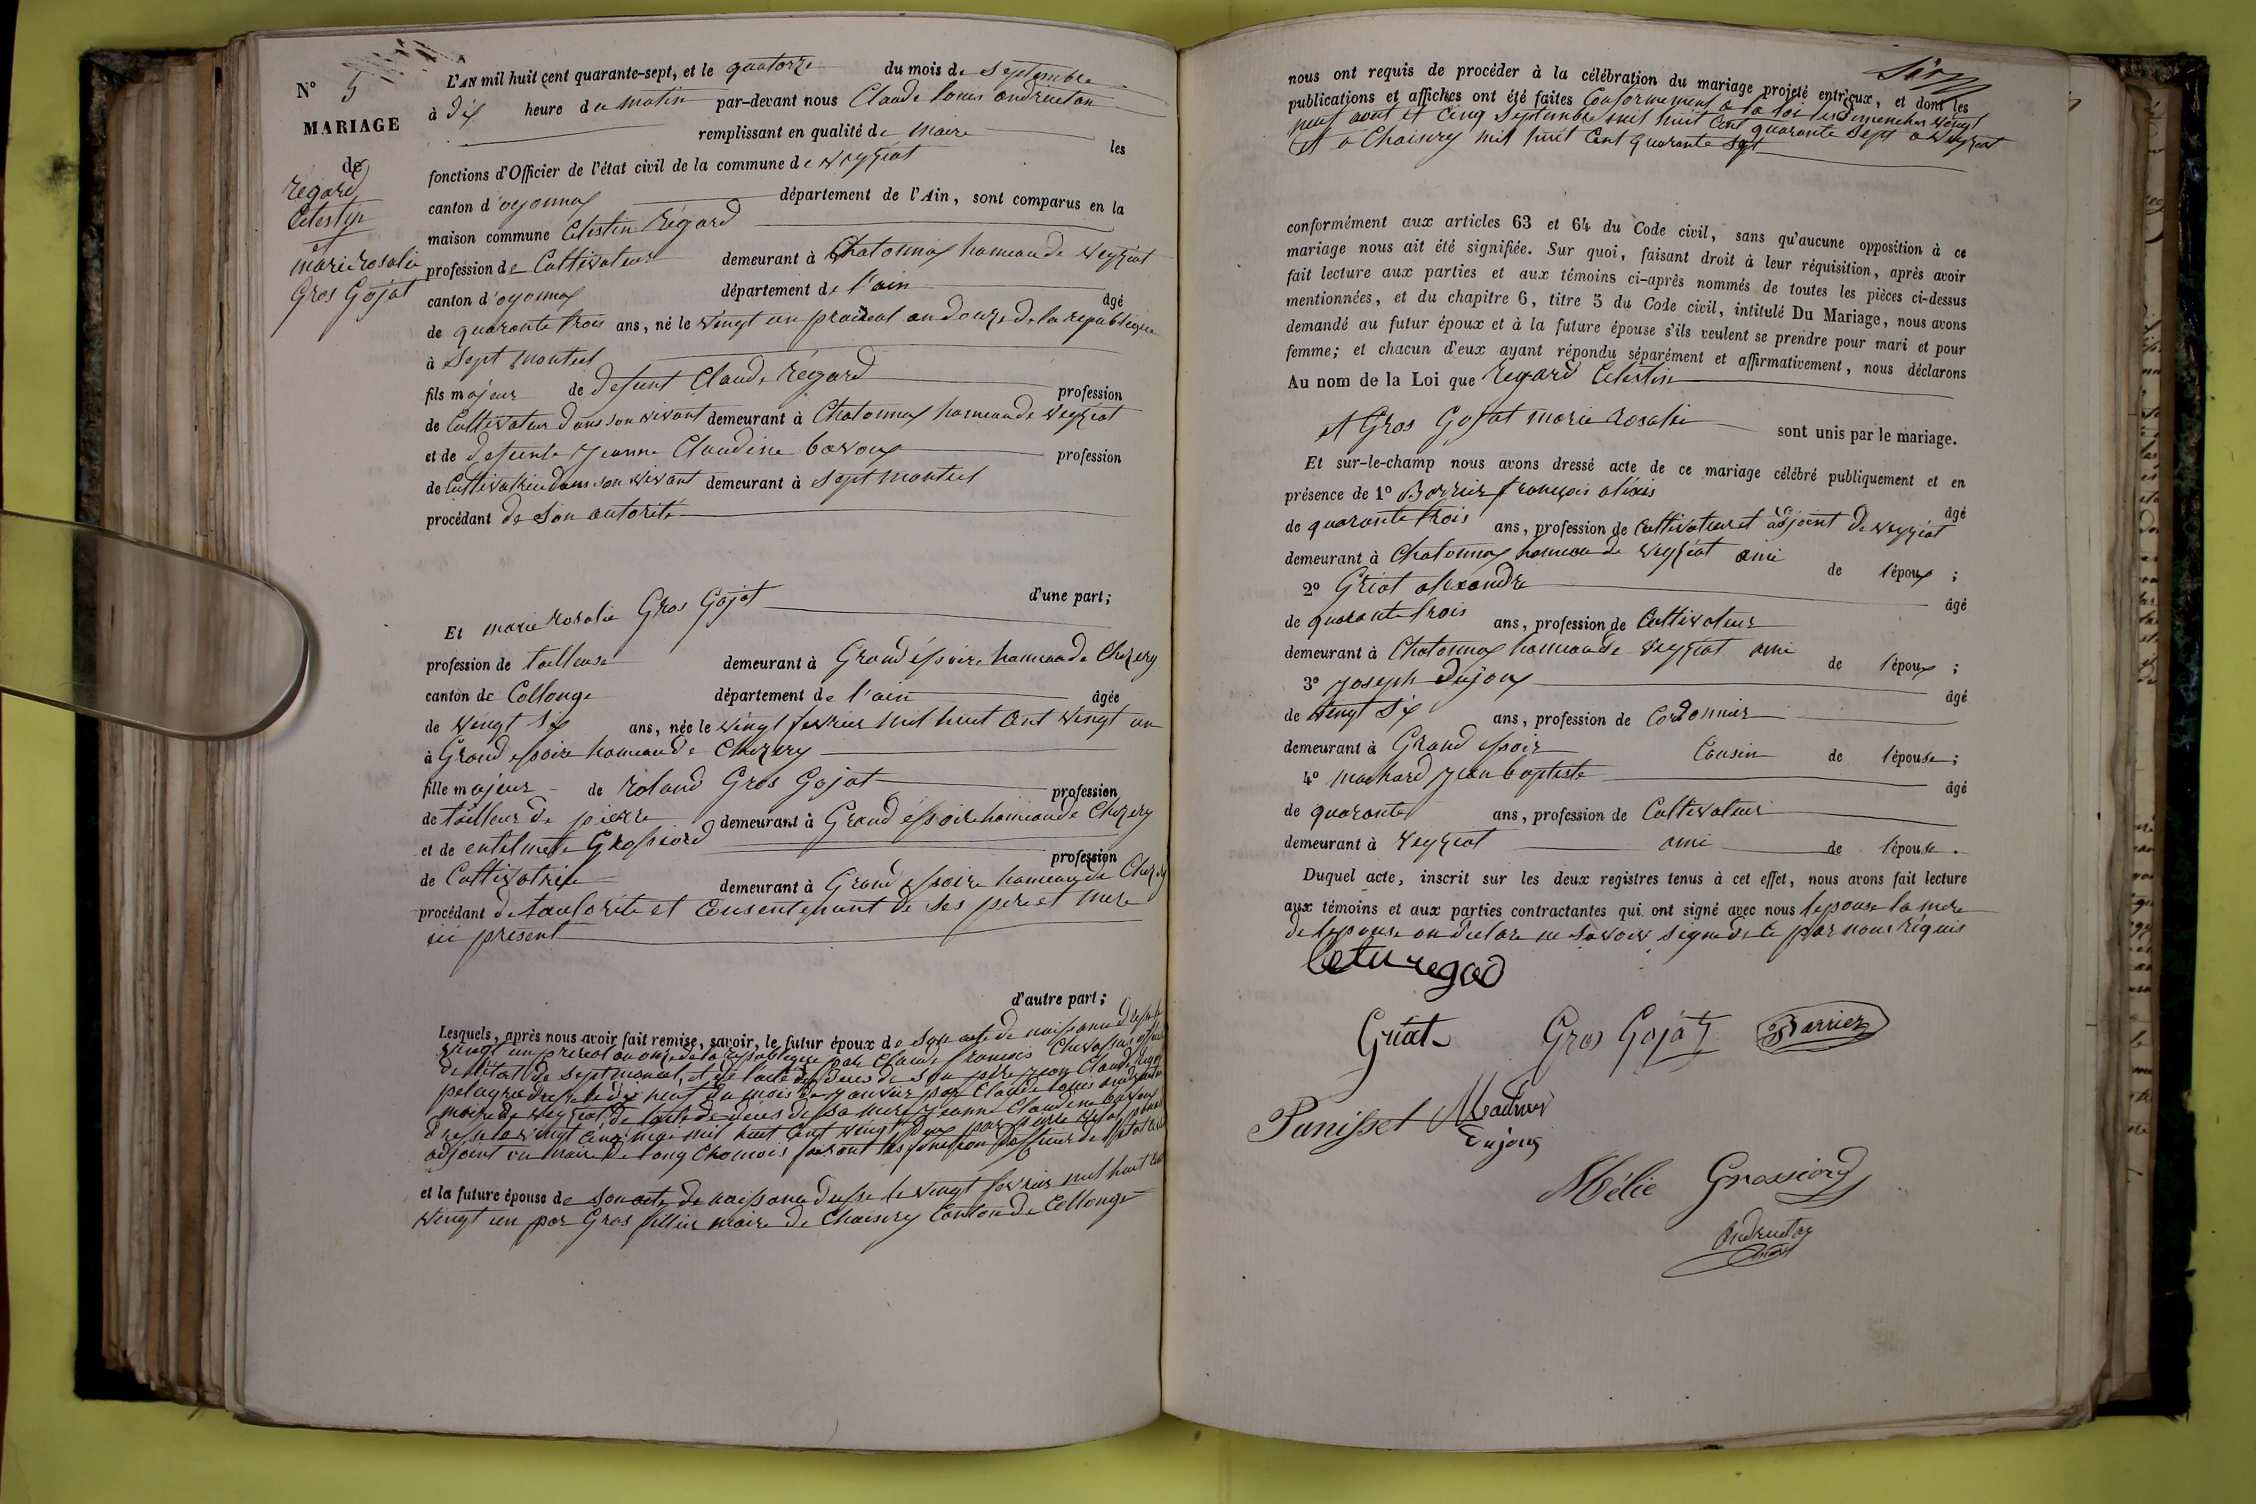 N° 5
MARIAGE
de
regard
Celestin
et
marie rosalie
Gros Gojat
L'AN mil huit cent quarante-sept, et le quatorze du mois de Septembre
à dix heure du matin par-devant nous Claude louis andruetan
remplissant en qualité de maire les
fonctions d'Officier de l'état civil de la commune de veyziat
canton d'oyonnax département de l'Ain, sont comparus en la
maison commune Celestin Régard
profession de Cultivateur demeurant à Chatonnax hameau de veyziat
canton d'oyonnax département de l'ain âgé
de quarante trois ans, né le vingt un prairial an douze de la republique
à Sept moncel
fils majeur de defunt Claude Régard profession
de Cultivateur dans son vivant demeurant à Chatonnax hameau de veyziat
et de defunte jeanne Claudine bavoux profession
de Cultivatrice dans son vivant demeurant à Sept montcel
procédant de Son autorité
d'une part;
Et marie rosalie Gros Gojat
profession de tailleuse demeurant à Grand éssoire hameau de Chezery
canton de Collonge département de l'ain âgée
de vingt six ans, née le vingt fevrier mil huit Cent vingt un
à Grand essoire hameau de Chezery
fille majeur de roland Gros Gojat profession
de tailleur de pierre demeurant à Grand éssoire hameau de Chezery
et de entelmette Grossiord profession
de Cultivatrice demeurant à Grand essoire hameau de Chezery
procédant de l'autorité et Consentement de Ses pere et mere
ici présent
d'autre part;
Lesquels, après nous avoir fait remise, savoir, le futur époux de Son acte de naissance dressé le
vingt un prerial an onze de la republique par Claude françois Chevassus officier
de l'état de Septmoncel, et de l'acte de deces de Son père jean Claude Regard
pelagrue dressé le dix neuf du mois de janvier par Claude louis andruetan
maire de veyziat de l'acte de deces de Sa mere jeanne Claudine bavoux
dressé le vingt Cinq mai mil huit Cent vingt deux par pierre
adjoint au maire de long Chaumois faisant les fonction d'officier de l'état civil
et la future épouse de son acte de naissance dressé le vingt fevrier mil huit Cent
vingt un par Gros fillier maire de Chaisery Canton de Collonge
nous ont requis de procéder à la célébration du mariage projeté entr'eux, et dont les
publications et affiches ont été faites Conformement a la loi les dimenches vingt
neuf aout et Cinq Septembre mil huit Cent quarante Sept a veyziat
et a Chaisery mil huit Cent quarante Sept
conformément aux articles 63 et 64 du Code civil, sans qu'aucune opposition à ce
mariage nous ait été signifiée. Sur quoi, faisant droit à leur réquisition, après avoir
fait lecture aux parties et aux témoins ci-après nommés de toutes les pièces ci-dessus
mentionnées, et du chapitre 6, titre 5 du Code civil, intitulé Du Mariage, nous avons
demandé au futur époux et à la future épouse s'ils veulent se prendre pour mari et pour
femme; et chacun d'eux ayant répondu séparément et affirmativement, nous déclarons
Au nom de la Loi que Regard Celestin
et Gros Gojat marie rosalie sont unis par le mariage.
Et sur-le-champ nous avons dressé acte de ce mariage célébré publiquement et en
présence de 1° Borrier françois aléxis âgé
de quarante trois ans, profession de Cultivateur et adjoint de veyziat
demeurant à Chatonnax hameau de veyziat ami de l'époux;
2° Griat alexandre âgé
de quarante trois ans, profession de Cultivateur
demeurant à Chatonnax hameau de Veyziat ami de l'époux;
3° joseph Dujoux âgé
de vingt Six ans, profession de Cordonnier
demeurant à Grand essoir Cousin de l'épouse;
4° machard jean baptiste âgé
de quarante ans, profession de Cultivateur
demeurant à Veyziat ami de l'épouse.
Duquel acte, inscrit sur les deux registres tenus à cet effet, nous avons fait lecture
aux témoins et aux parties contractantes qui ont signé avec nous lepouse la mere
de lepouse on declare ne Savoir signe de ce par nous réquis
regad
Griat Gros Gojat Barrier
Panisset Machard
Dujoux
Mélie Grossiord
Andruetan